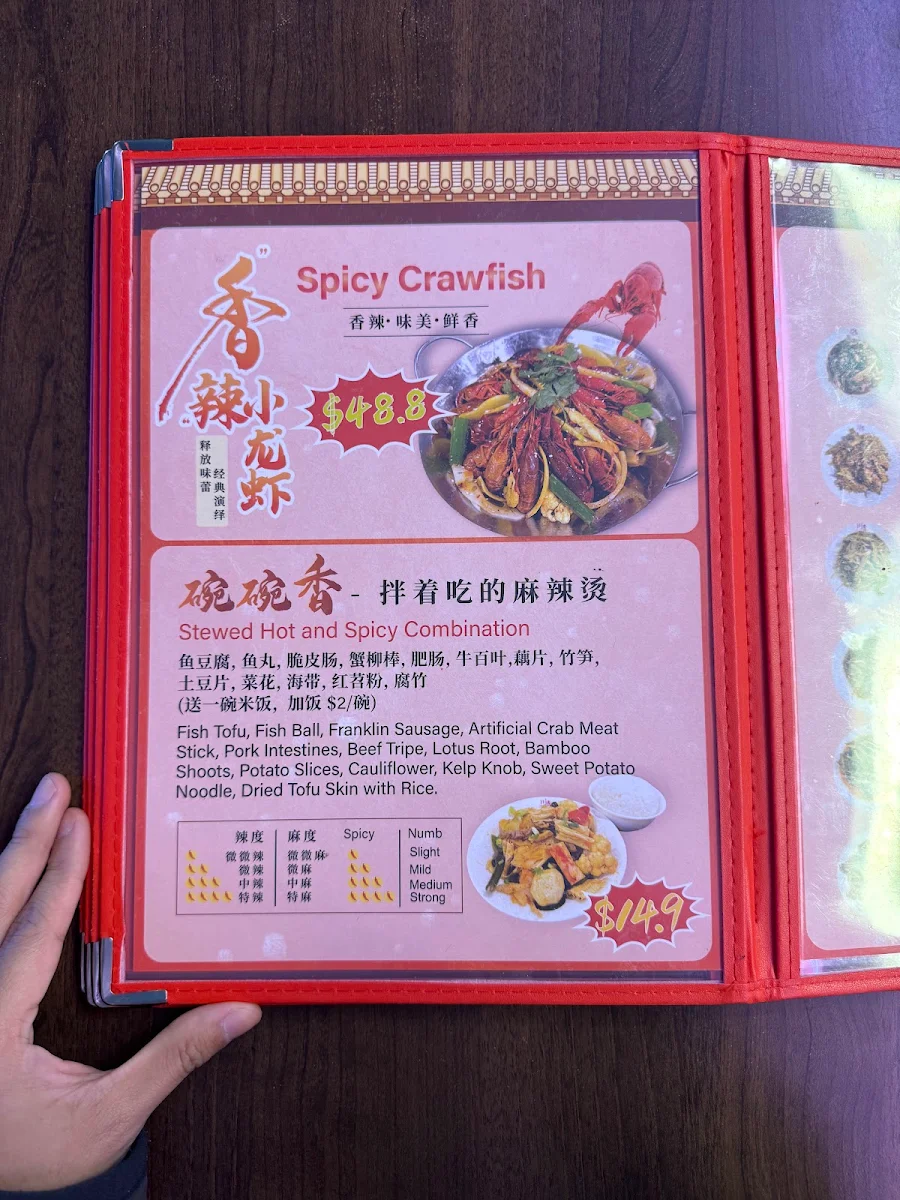 "香辣"小龙虾
Spicy Crawfish
香辣·味美·鲜香
$48.8
释放味蕾
经典演绎
碗碗香 - 拌着吃的麻辣烫
Stewed Hot and Spicy Combination
鱼豆腐, 鱼丸, 脆皮肠, 蟹柳棒, 肥肠, 牛百叶,藕片, 竹笋,
土豆片, 菜花, 海带, 红苕粉, 腐竹
(送一碗米饭, 加饭 $2/碗)
Fish Tofu, Fish Ball, Franklin Sausage, Artificial Crab Meat
Stick, Pork Intestines, Beef Tripe, Lotus Root, Bamboo
Shoots, Potato Slices, Cauliflower, Kelp Knob, Sweet Potato
Noodle, Dried Tofu Skin with Rice.
辣度 麻度 Spicy Numb
微微辣 微微麻 Slight
微辣 微麻 Mild
中辣 中麻 Medium
特辣 特麻 Strong
$14.9